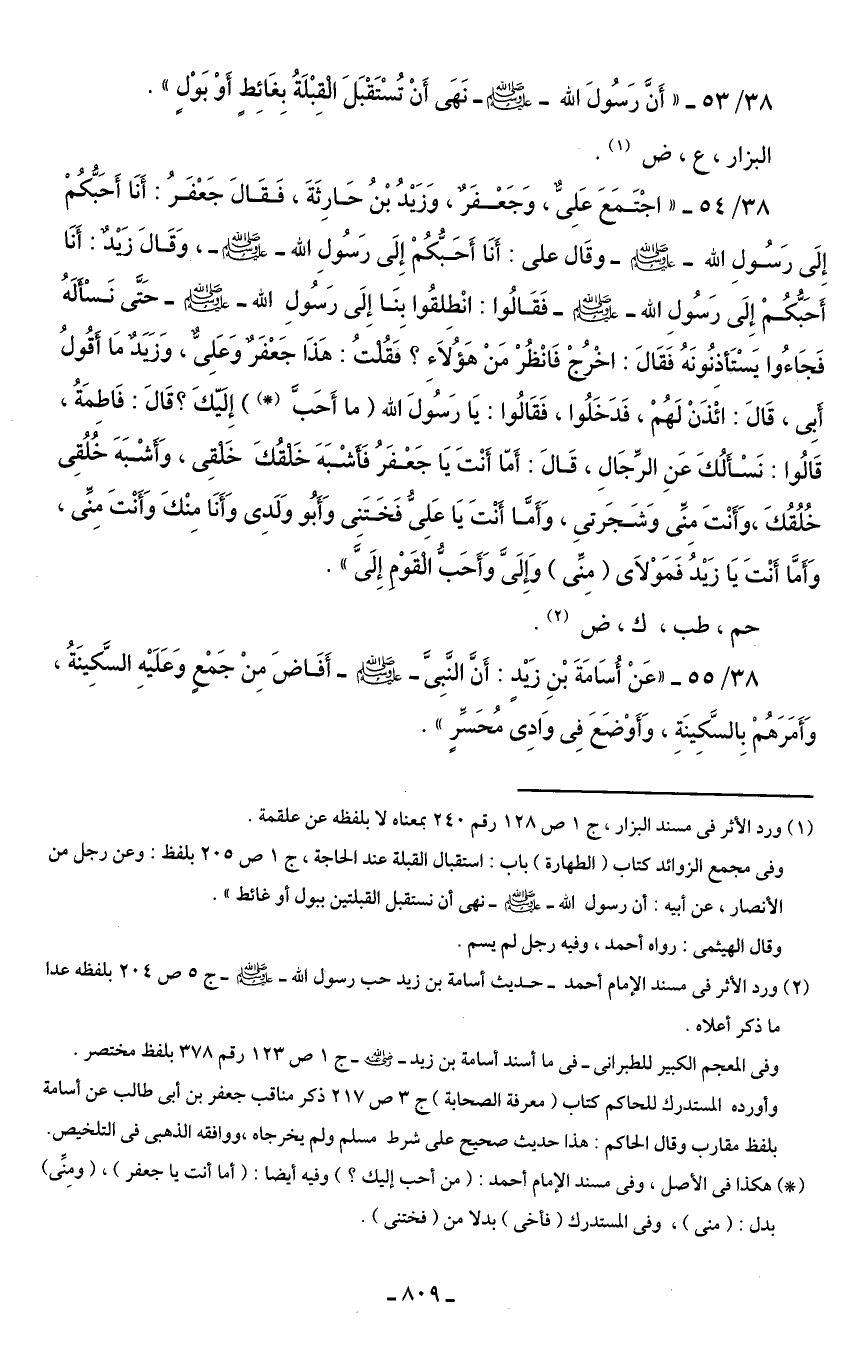 ٣٨/ ٥٣ ـ « أَنَّ رَسُولَ الله ـ ﷺ ـ نَهَى أَنْ تُسْتَقْبَلَ الْقِبْلَةُ بِغَائِطٍ أَوْ بَوْلٍ » .
البزار ، ع ، ض (١) .
٣٨/ ٥٤ ـ « اجْتَمَعَ عَلِىٌّ ، وَجَعْفَرٌ ، وَزَيْدُ بْنُ حَارِثَةَ ، فَقَالَ جَعْفَرُ : أَنَا أَحَبُّكُمْ
إِلَى رَسُولِ الله ـ ﷺ ـ وقَال على : أَنَا أَحَبُّكُمْ إِلَى رَسُولِ الله ـ ﷺ ـ ، وَقَالَ زَيْدٌ : أَنَا
أَحَبُّكُمْ إِلَى رَسُولِ الله ـ ﷺ ـ فَقَالُوا : انْطلِقُوا بِنَا إِلَى رَسُولِ الله ـ ﷺ ـ حَتَّى نَسْأَلَهُ
فَجَاءُوا يَسْتَأذِنُونَهُ فَقَالَ : اخْرُجْ فَانْظُر مَنْ هَؤُلاَءِ ؟ فَقُلْتُ : هَذَا جَعْفَرٌ وَعَلِىٌّ ، وَزَيَدٌ مَا أَقُولُ
أَبِى ، قَالَ : ائْذَنْ لَهُمْ ، فَدَخَلُوا ، فَقَالُوا : يَا رَسُولَ الله ( ما أَحَبَّ (*) ) إِلَيْكَ ؟ قَالَ : فَاطِمَةُ ،
قَالُوا : نَسْأَلُكَ عَنِ الرِّجَالِ ، قَالَ : أَمّا أَنْتَ يَا جَعْفَرُ فَأَشْبَهَ خَلْقُكَ خَلْقِى ، وَأَشْبَهَ خُلُقِى
خُلُقُكَ ، وَأَنْتَ مِنِّى وَشَجَرَتِى ، وَأَمَّا أَنْتَ يَا عَلِىُّ فَخَتَنِى وَأَبُو وَلَدِى وَأَنَا مِنْكَ وَأَنْتَ مِنِّى ،
وَأَمَّا أَنْتَ يَا زَيْدُ فَمَوْلاَى ( مِنِّى ) وَإِلَىَّ وَأَحَبُّ الْقَوْمِ إِلَىَّ » .
حم ، طب ، ك ، ض (٢) .
٣٨/ ٥٥ ـ «عَنْ أُسَامَةَ بْنِ زَيْدٍ : أَنَّ النَّبِىَّ ـ ﷺ ـ أَفَاضَ مِنْ جَمْعٍ وَعَلَيْهِ السَّكِينَةُ ،
وَأَمَرَهُمْ بِالسَّكِينَةِ ، وَأَوْضَعَ فِى وَادِى مُحَسِّرٍ » .
(١) ورد الأثر فى مسند البزار ، ج ١ ص ١٢٨ رقم ٢٤٠ بمعناه لا بلفظه عن علقمة .
وفى مجمع الزوائد كتاب ( الطهارة ) باب : استقبال القبلة عند الحاجة ، ج ١ ص ٢٠٥ بلفظ : وعن رجل من
الأنصار ، عن أبيه : أن رسول الله ـ ﷺ ـ نهى أن نستقبل القبلتين ببول أو غائط » .
وقال الهيثمى : رواه أحمد ، وفيه رجل لم يسم .
(٢) ورد الأثر فى مسند الإمام أحمد ـ حديث أسامة بن زيد حب رسول الله ـ ﷺ ـ ج ٥ ص ٢٠٤ بلفظه عدا
ما ذكر أعلاه .
وفى المعجم الكبير للطبرانى ـ فى ما أسند أسامة بن زيد ـ رضي الله عنه ـ ج ١ ص ١٢٣ رقم ٣٧٨ بلفظ مختصر .
وأورده المستدرك للحاكم كتاب ( معرفة الصحابة ) ج ٣ ص ٢١٧ ذكر مناقب جعفر بن أبى طالب عن أسامة
بلفظ مقارب وقال الحاكم : هذا حديث صحيح على شرط مسلم ولم يخرجاه ،ووافقه الذهبى فى التلخيص.
(*) هكذا فى الأصل ، وفى مسند الإمام أحمد : ( من أحب إليك ؟ ) وفيه أيضا : ( أما أنت يا جعفر ) ، ( ومِنِّى)
بدل : ( منى ) ، وفى المستدرك ( فأخى ) بدلا من ( فختنى ) .
ـ ٨٠٩ ـ